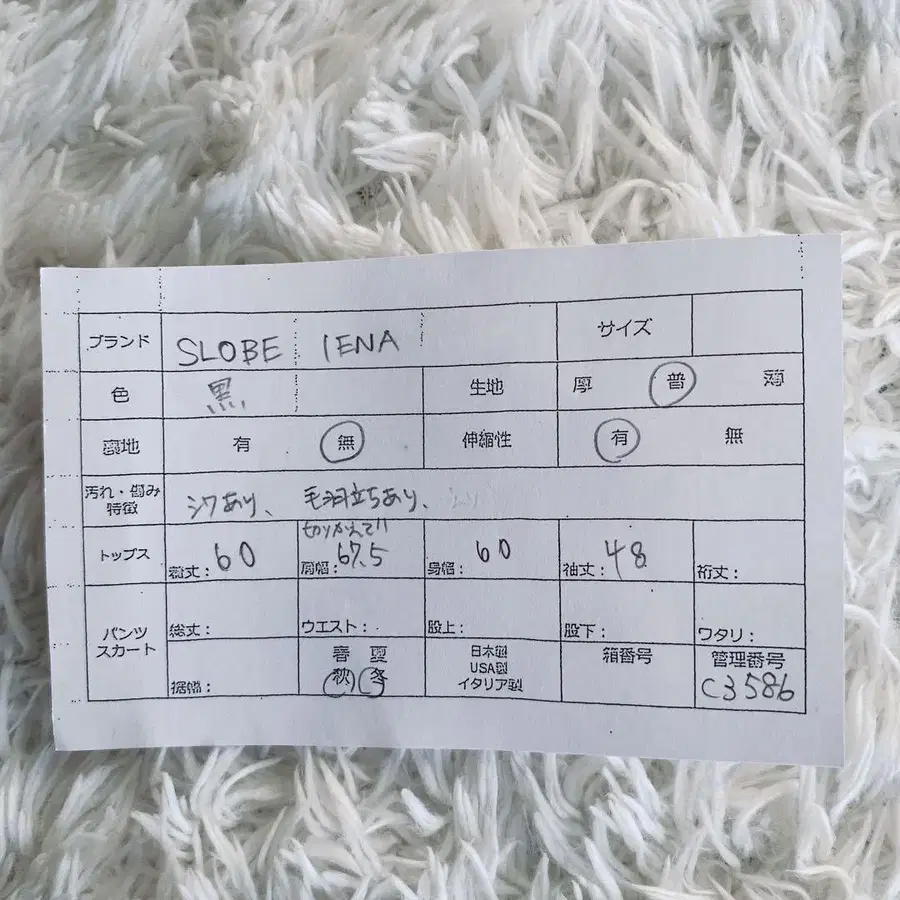 ブランド SLOBE IENA サイズ
色 黒 生地 厚 普 薄
裏地 有 無 伸縮性 有 無
汚れ・傷み
特徴 シワあり、毛羽立ちあり、
切りかえで!!
トップス 着丈：60 肩幅：67.5 身幅：60 袖丈：48 裄丈：
パンツ
スカート
総丈： ウエスト： 股上： 股下： ワタリ：
裾幅：
春 夏
秋 冬
日本製
USA製
イタリア製
箱番号
管理番号
C3586